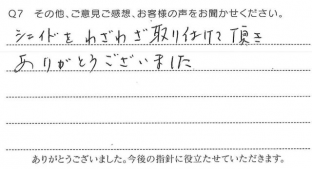 Q7 その他、ご意見ご感想、お客様の声をお聞かせください。
シェイドをわざわざ取り付けて頂き
ありがとうございました
ありがとうございました。今後の指針に役立たせていただきます。